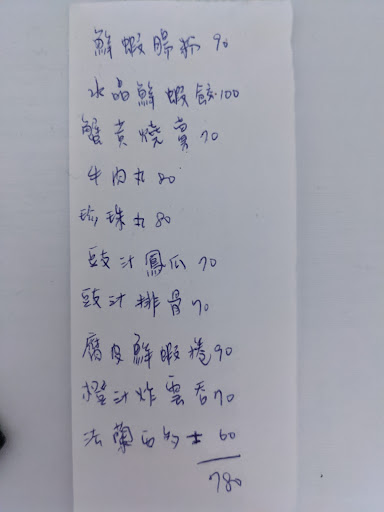 鮮蝦腸粉 90
水晶鮮蝦餃 100
蟹黃燒賣 70
牛肉丸 80
珍珠丸 80
豉汁鳳瓜 70
豉汁排骨 70
腐皮鮮蝦捲 90
橙汁炸雲吞 70
法蘭西多士 60
780